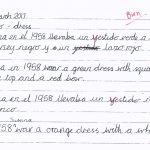 Bien -
March 2017
- dress
a en el 1958 llevaba un vestido verde a
negro y un vestido lazo rojo.
in 1958 wear a green dress with squa
top and a red bow.
a en el 1958 llevaba un vestido
blanco.
1958 wear a orange dress with a wh